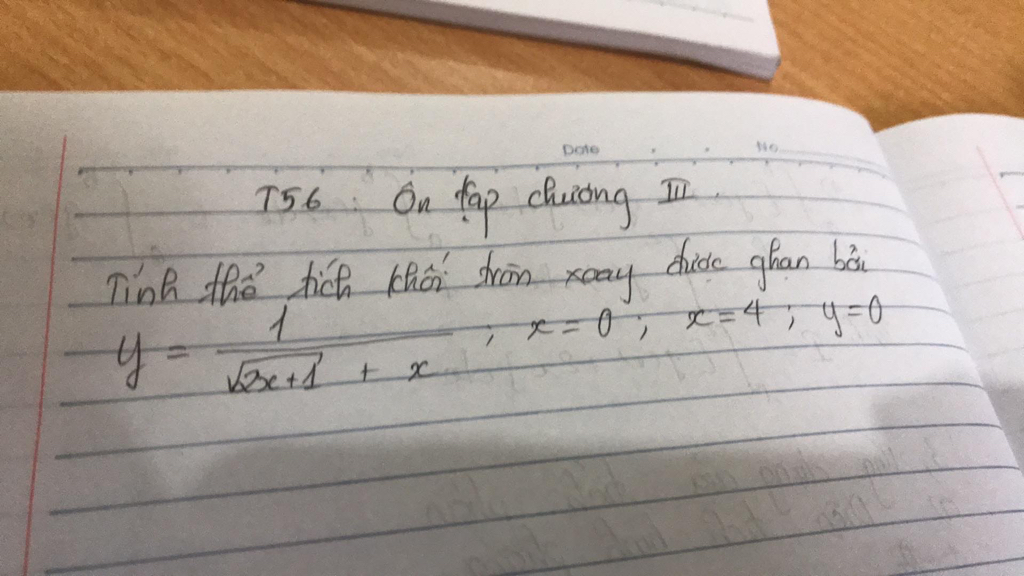 Date No
T56: Ôn tập chương III.
Tính thể tích khối tròn xoay được ghạn bởi
y = 1 / √2x+1 + x ; x = 0 ; x = 4 ; y = 0